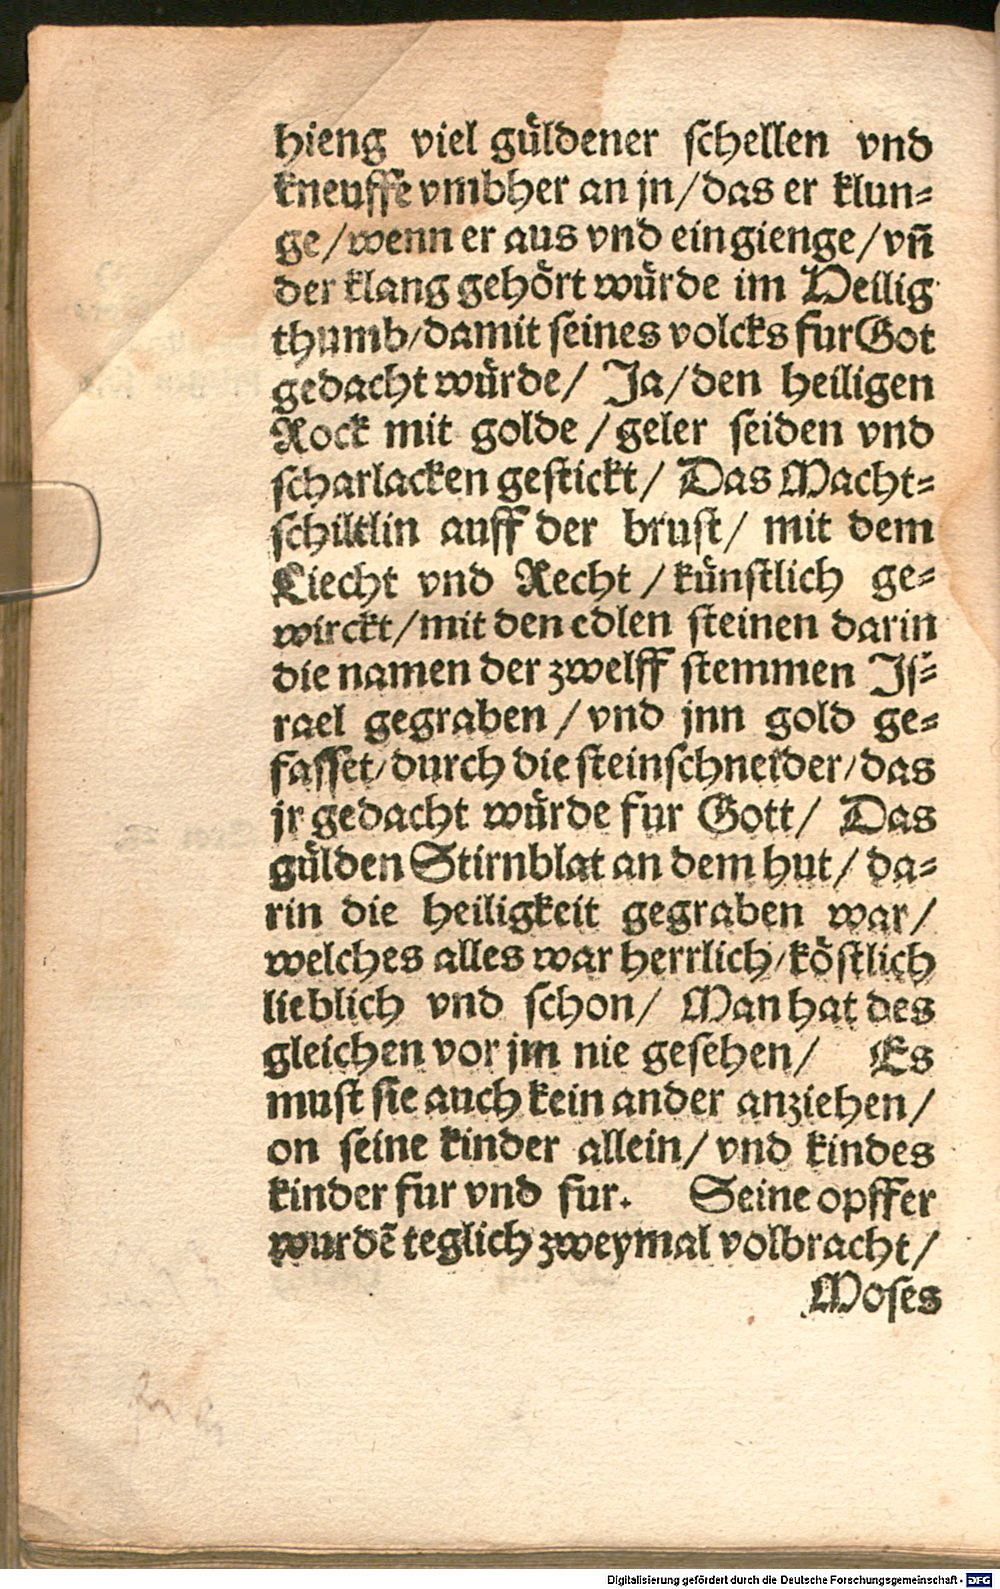 hieng viel gu̎ldener schellen vnd
kneuffe vmbher an jn/das er klun⸗
ge/wenn er aus vnd eingienge/vn̄
der klang geho̎rt wu̎rde im Heilig
thumb/damit seines volcks fur Got
gedacht wu̎rde/ Ja/den heiligen
Rock mit golde /geler seiden vnd
scharlacken gestickt/ Das Macht⸗
schiltlin auff der brust/ mit dem
Liecht vnd Recht /ku̎nstlich ge⸗
wirckt/mit den edlen steinen darin
die namen der zwelff stemmen Js⸗
rael gegraben /vnd jnn gold ge⸗
fasset/durch die steinschneider/das
jr gedacht wu̎rde fur Gott/ Das
gu̎lden Stirnblat an dem hut/ da⸗
rin die heiligkeit gegraben war/
welches alles war herrlich/ko̎stlich
lieblich vnd schon/ Man hat des
gleichen vor jm nie gesehen/ Es
must sie auch kein ander anziehen/
on seine kinder allein/vnd kindes
kinder fur vnd fur. Seine opffer
wurdē teglich zweymal volbracht/
Moses
Digitalisierung gefördert durch die Deutsche Forschungsgemeinschaft - DFG